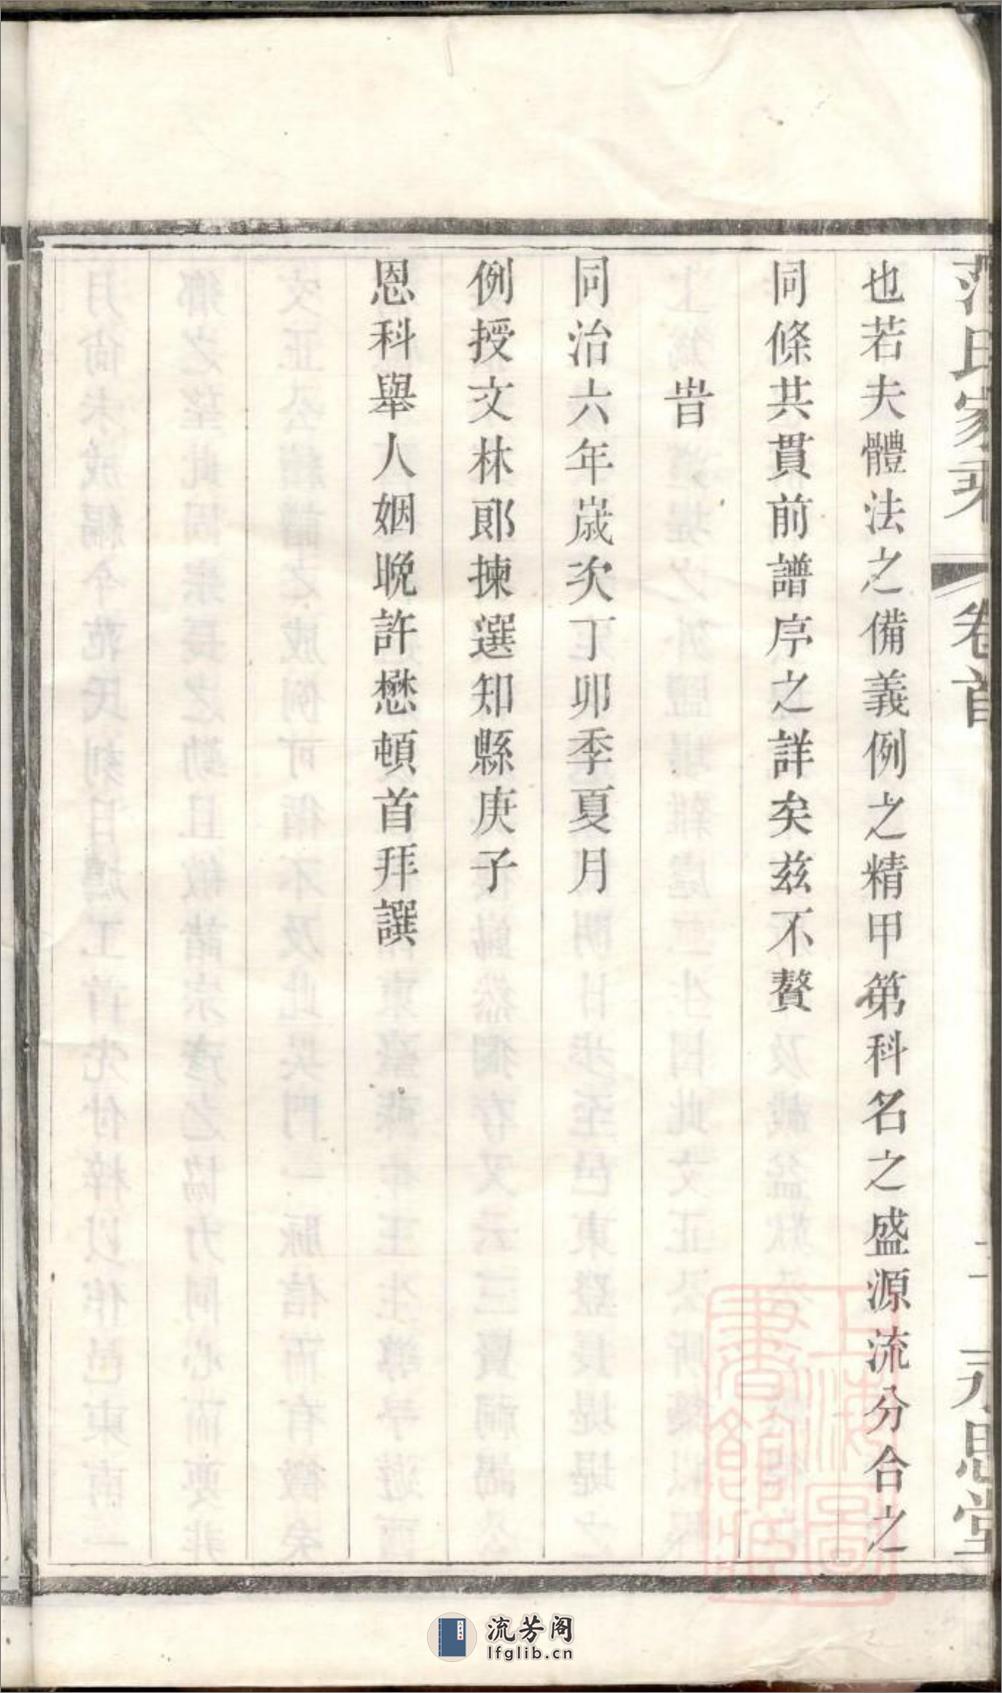 范氏家乘 卷首 永思堂
也若夫體法之備義例之精甲第科名之盛源流分合之
同條共貫前譜序之詳矣茲不贅
旹
同治六年歲次丁卯季夏月
例授文林郎揀選知縣庚子
恩科舉人姻晚許懋頓首拜譔
上海圖書館藏
流芳阁
lfglib.cn